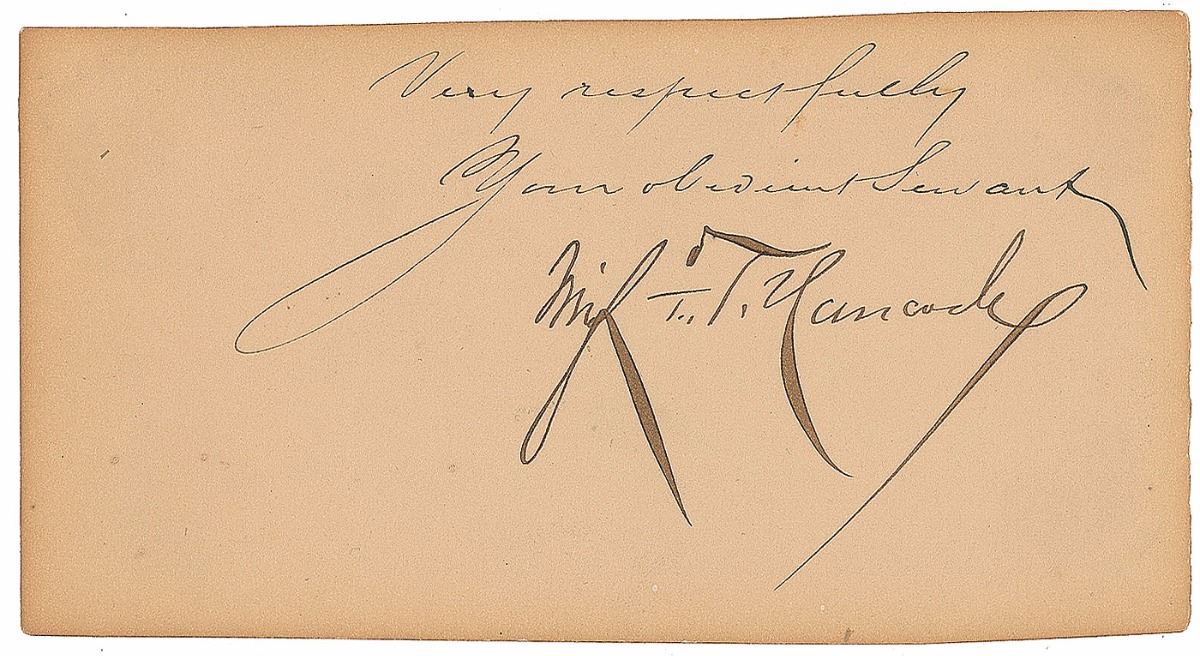 Very respectfully
Your obedient Servant
Winfd. S. Hancock